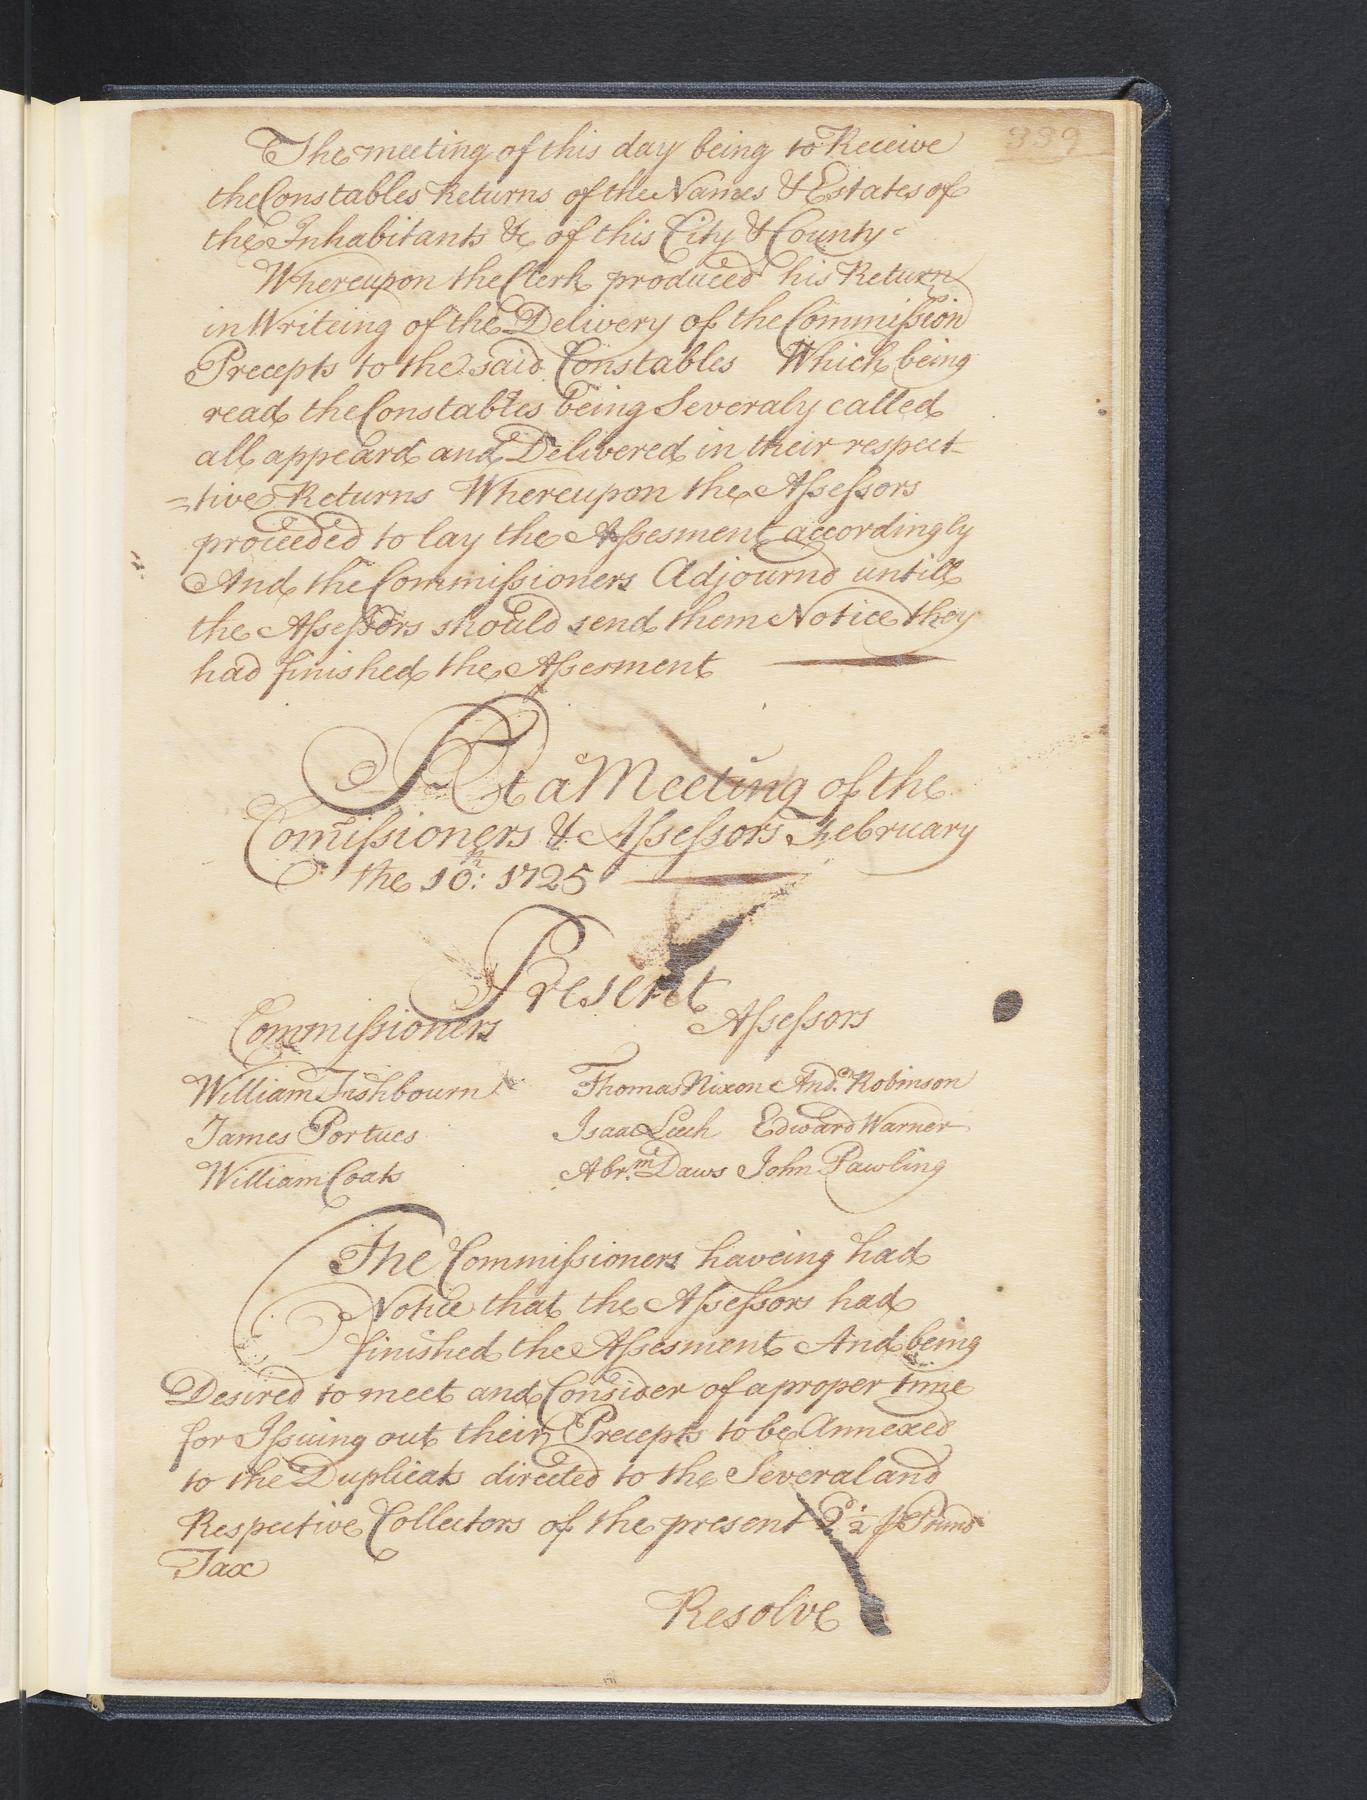 339
The meeting of this day being to Receive
the Constables Returns of the Names & Estates of
the Inhabitants &c of this City & County
Whereupon the Clerk produced his Return
in Writeing of the Delivery of the Commission
Precepts to the said Constables Which being
read the Constables being Severaly called
all appeard and Delivered in their respect-
=tive Returns Whereupon the Assessors
proceeded to lay the Assesment accordingly
And the Commissioners Adjournd untill
the Assessors should send them Notice they
had finished the Assesment
At a Meeting of the
Comissioners & Assessors February
the 10th: 1725
Present
Commissioners Assessors
William Fishbourn Thomas Nixon And.w Robinson
James Portues Isaac Leech Edward Warner
William Coats Abr.m Daws John Pawling
The Commissioners haveing had
Notice that the Assessors had
finished the Assesment And being
Desired to meet and Consider of a proper time
for Issuing out their Precepts to be Annexed
to the Duplicats directed to the Several and
Respective Collectors of the present Pound
Tax
Resolve